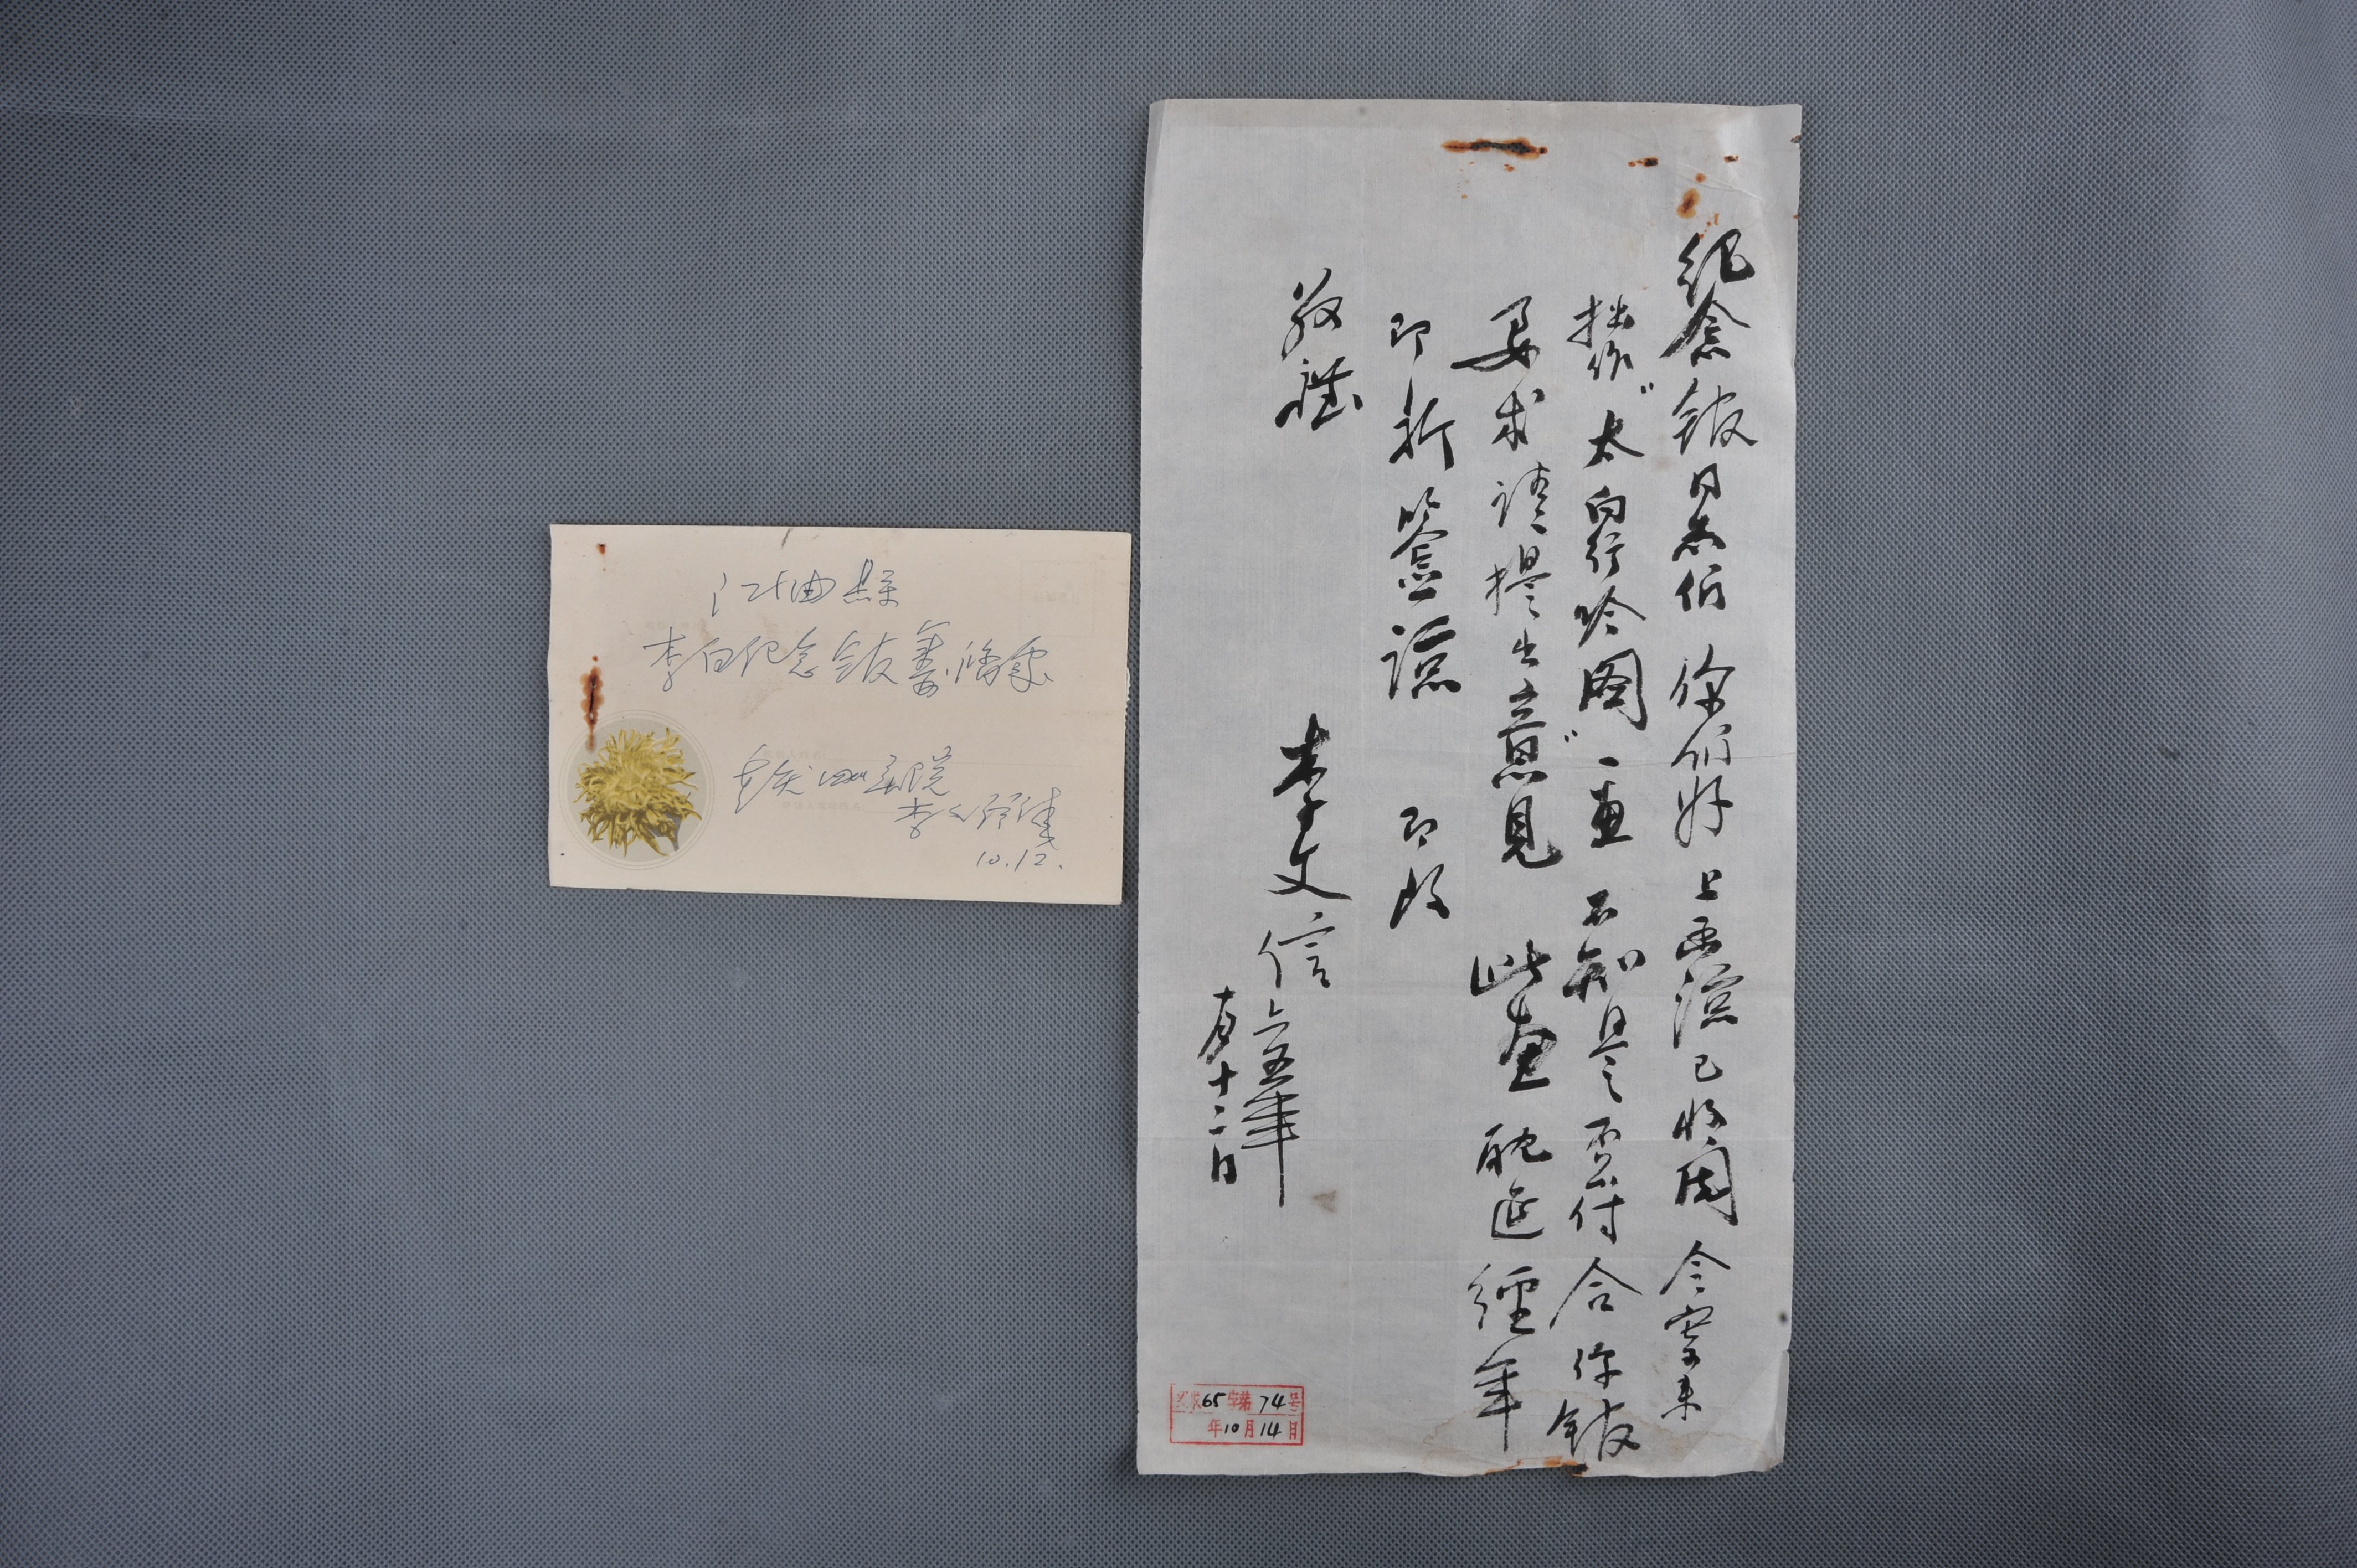 江油县
李白纪念馆筹备处
重庆四川美院
李文信
10.12.
纪念馆同志们 你们好 上函谅已收阅 今寄来
拙作“太白行吟图”一画 不知是否付合你馆
要求 请提出意见” 此画 耽延经年
即祈 鉴谅 即致
敬礼
李文信 六五年
十月十二日
收65字第74号
年10月14日